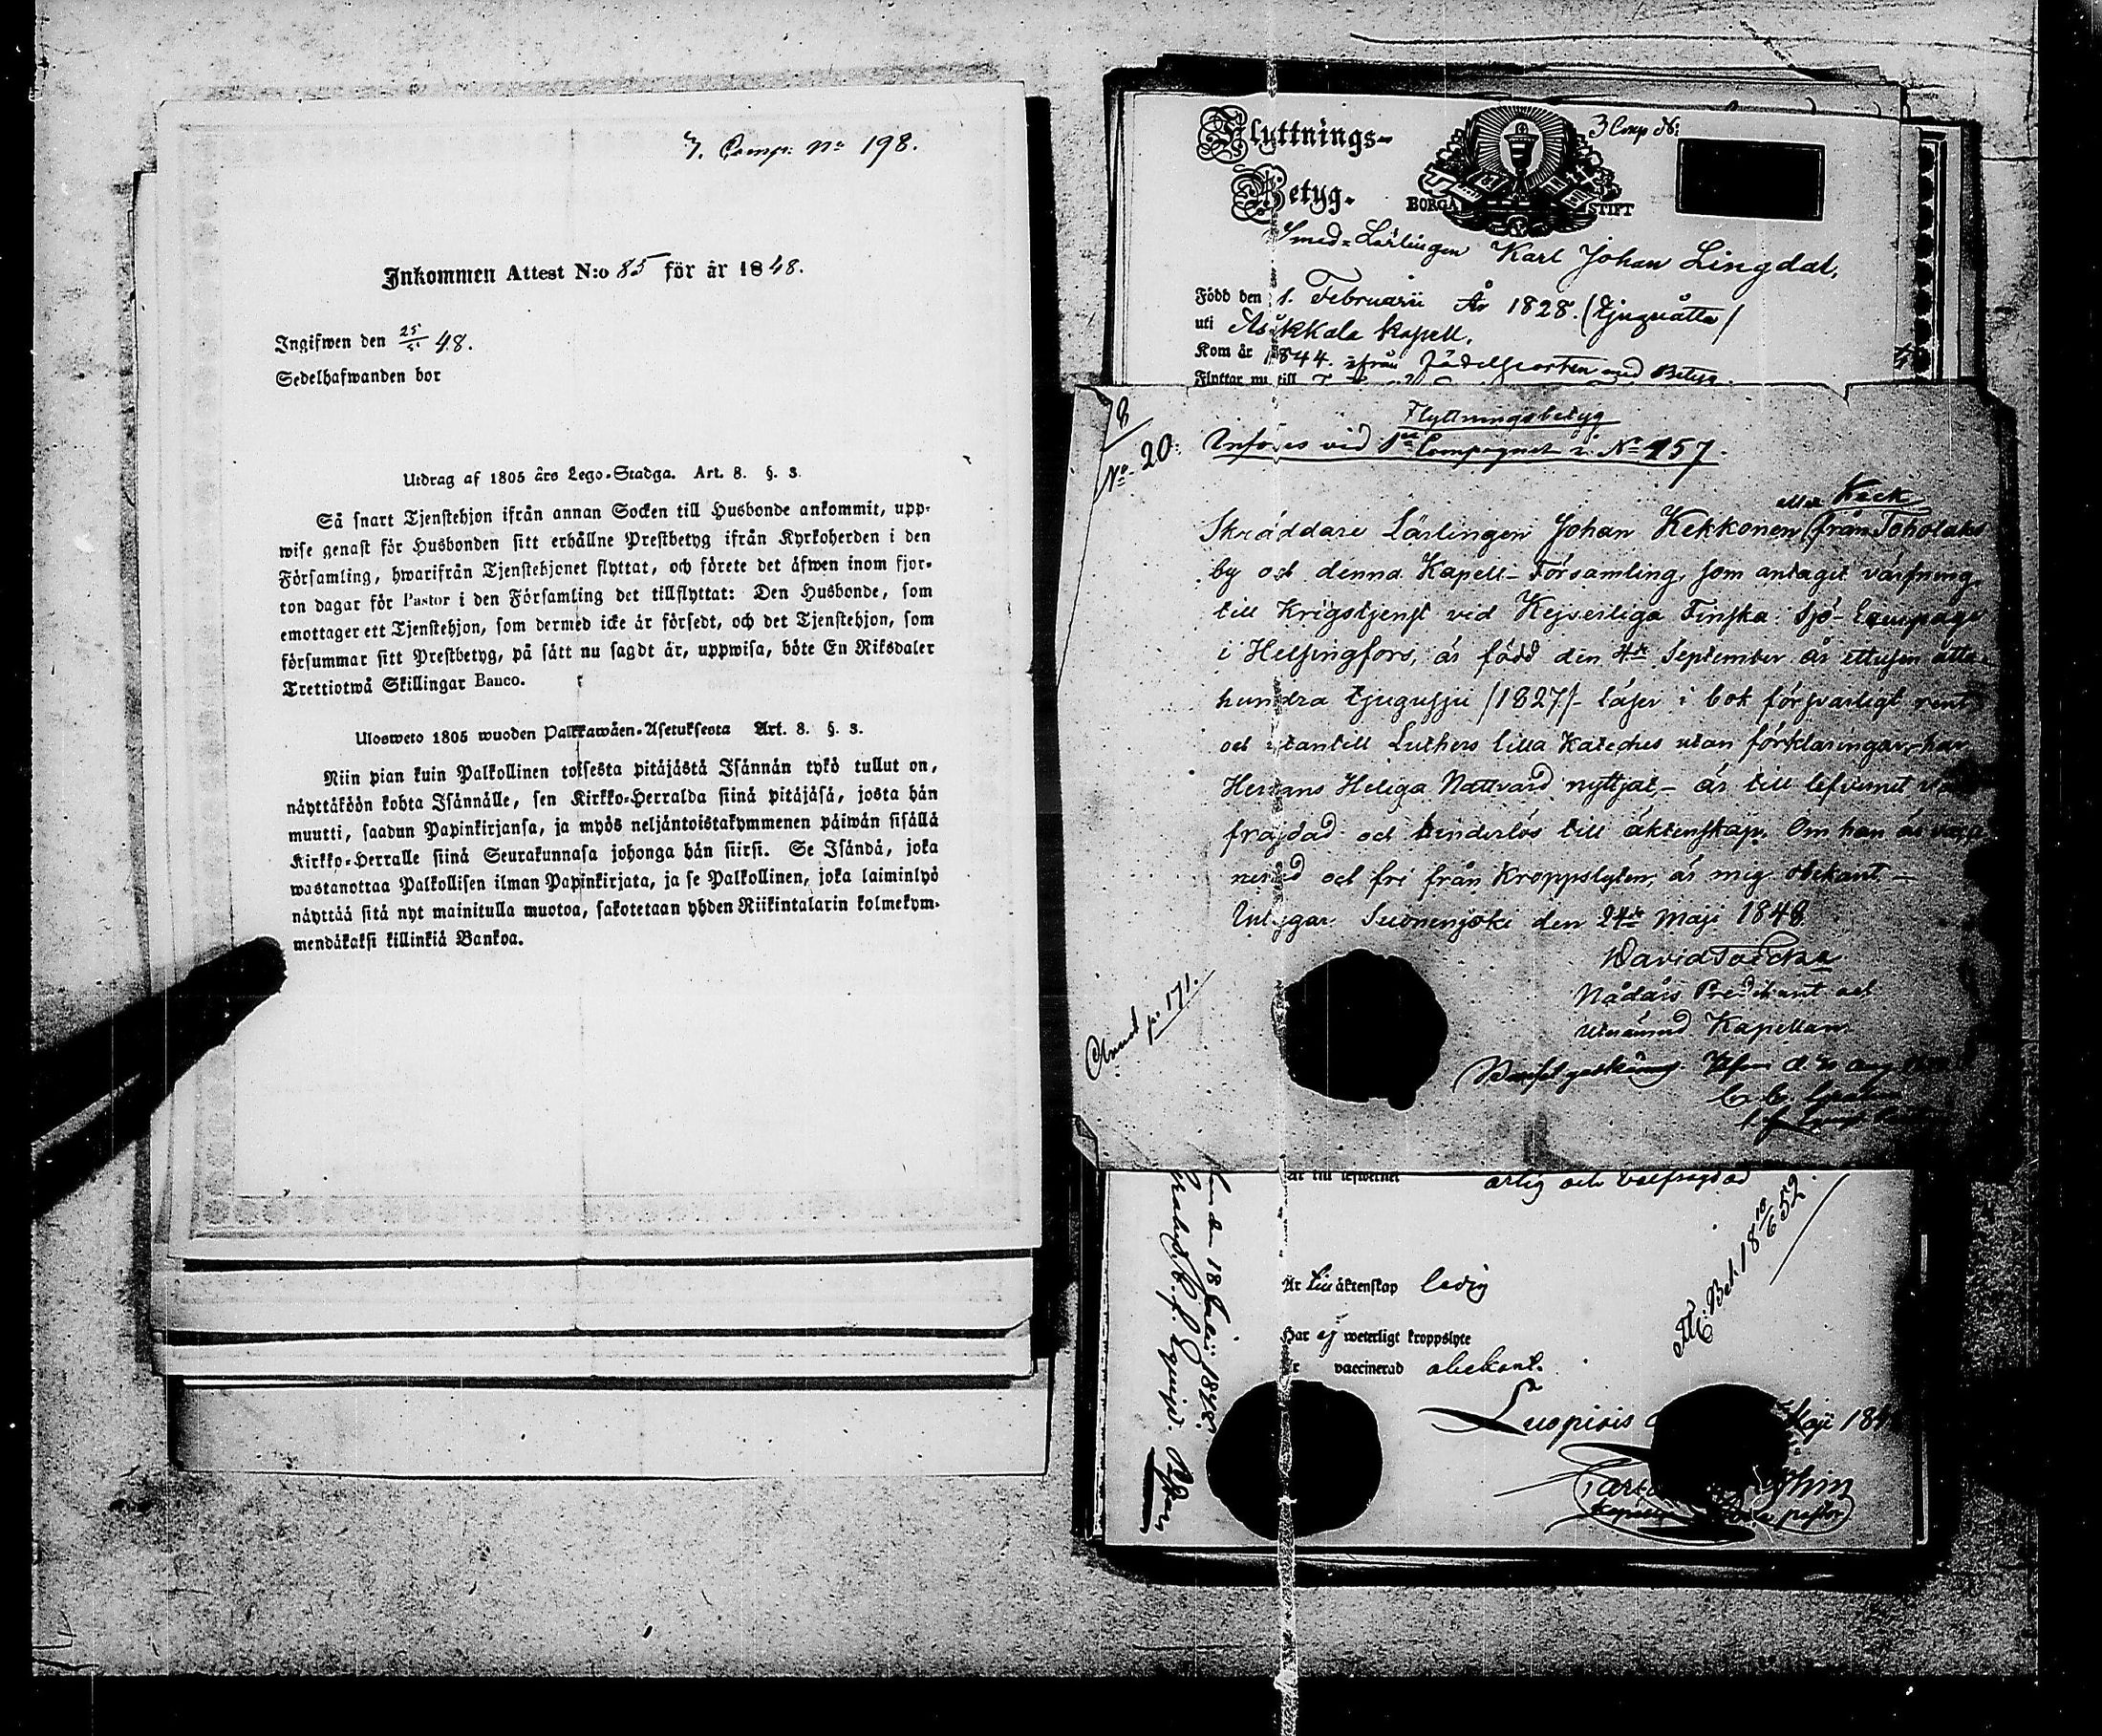 3. Comp: No 198.
Inkommen Attest N:o 85 för år 1848.
Ingifwen den 25/ 48.
Sedelhafwanden bor
Utdrag af 1805 års Lego-Stadga. Art. 8. §. 3.
Så snart Tjenstehjon ifrån annan Socken till Husbonde ankommit, upp-
wise genast för Husbonden sitt erhållne Prestbetyg ifrån Kyrkoherden i den
Församling, hwarifrån Tjenstehjonet flyttat, och förete det äfwen inom fjor-
ton dagar för Pastor i den Församling det tillflyttat: Den Husbonde, som
emottager ett Tjenstehjon, som dermed icke är försedt, och det Tjenstehjon, som
försummar sitt Prestbetyg, på sätt nu sagdt är, uppwisa, böte En Riksdaler
Trettiotwå Skillingar Banco.
Ulosweto 1805 wuoden Palkkawäen-Asetuksesta Art. 8. §. 3.
Niin pian kuin Palkollinen toisesta pitäjästä Isännän tykö tullut on,
näyttäköön kohta Isännälle, sen Kirkko-Herralda siinä pitäjäsä, josta hän
muutti, saadun Papinkirjansa, ja myös neljäntoistakymmenen päiwän sisällä
Kirkko-Herralle siinä Seurakunnasa johonga hän siirsi. Se Isändä, joka
wastanottaa Palkollisen ilman Papinkirjata, ja se Palkollinen, joka laiminlyö
näyttää sitä nyt mainitulla muotoa, sakotetaan yhden Riikintalarin kolmekym-
mendäkaksi killinkiä Bankoa.
3 Comp N:
Flyttnings-
Betyg.
BORGÅ STIFT
Smed-Lärlingen Karl Johan Lingdal,
Född den 1. Februarii År 1828. (tjuguåtta)
uti Asikkala Kapell,
Kom år 1844. ifrån med Betyg.
Flyttar nu till
8
No 20.
Flyttningsbetyg
Införes vid 1sta Compagnet i. No 157.
eller Keck
Skräddare Lärlingen Johan Kekkonen (från Toholahti
by och denna Kapell-Församling, som antagit värfning
till Krigstjenst vid Kejserliga Finska Sjö-Equipaget
i Helsingfors, är född den 4de September år ettusen åtta-
hundra tjugusju /1827/- läser i bok försvarligt rent
och utantill Luthers lilla Kateches utan förklaringar,- har
Herrans Heliga Nattvard nyttjat,- är till lefvernet
frägdad och hinderlös till äktenskap. Om han är
nerad och fri från Kroppslyten, är mig obekant.-
Intygar Suonenjoki den 24de Maji 1848
David
Nådårs Predikant och
utnämnd Kapellan.
Annot p. 171.
Är till lefwernet ärlig och välfrägdad
Är till äktenskap ledig
Har ej weterligt kroppslyte
Är vaccinerad obekant.
Luopiois Maji 184
den 18 Julii 1848.
Bet 18 10/6 52.